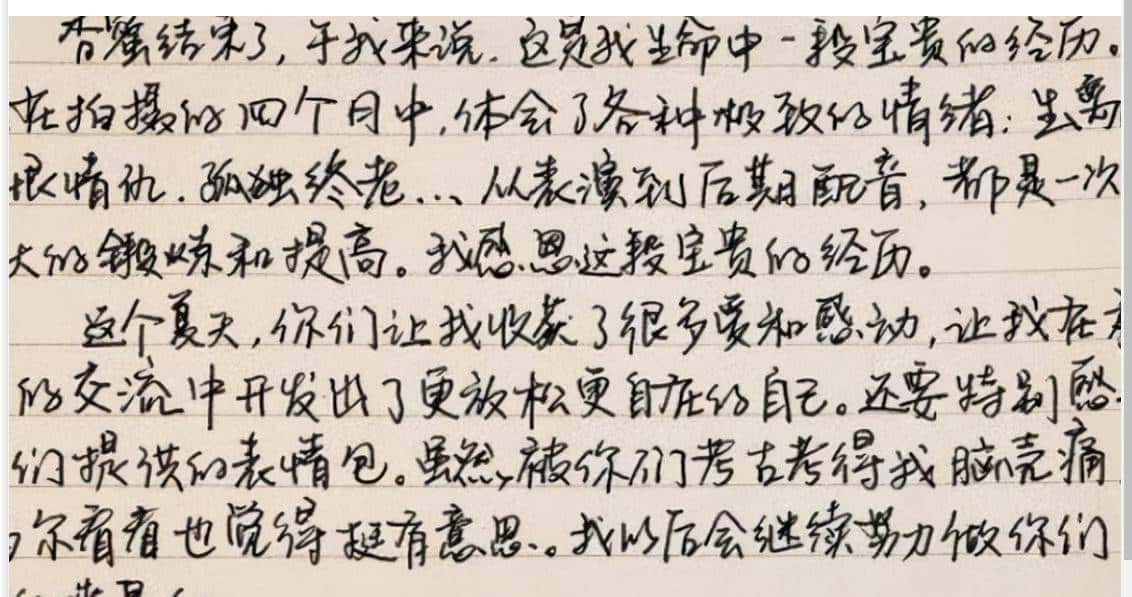 香蜜结束了,于我来说.这是我生命中一段宝贵的经历。
在拍摄的四个月中,体会了各种极致的情绪:生离
恨情仇.孤独终老...从表演到后期配音,都是一次
大的锻炼和提高。我感恩这段宝贵的经历。
这个夏天,你们让我收获了很多爱和感动,让我在
的交流中开发出了更放松更自在的自己。还要特别感
们提供的表情包。虽然,被你们考古考得我脑壳痛
尔看看也觉得挺有意思。我以后会继续努力做你们